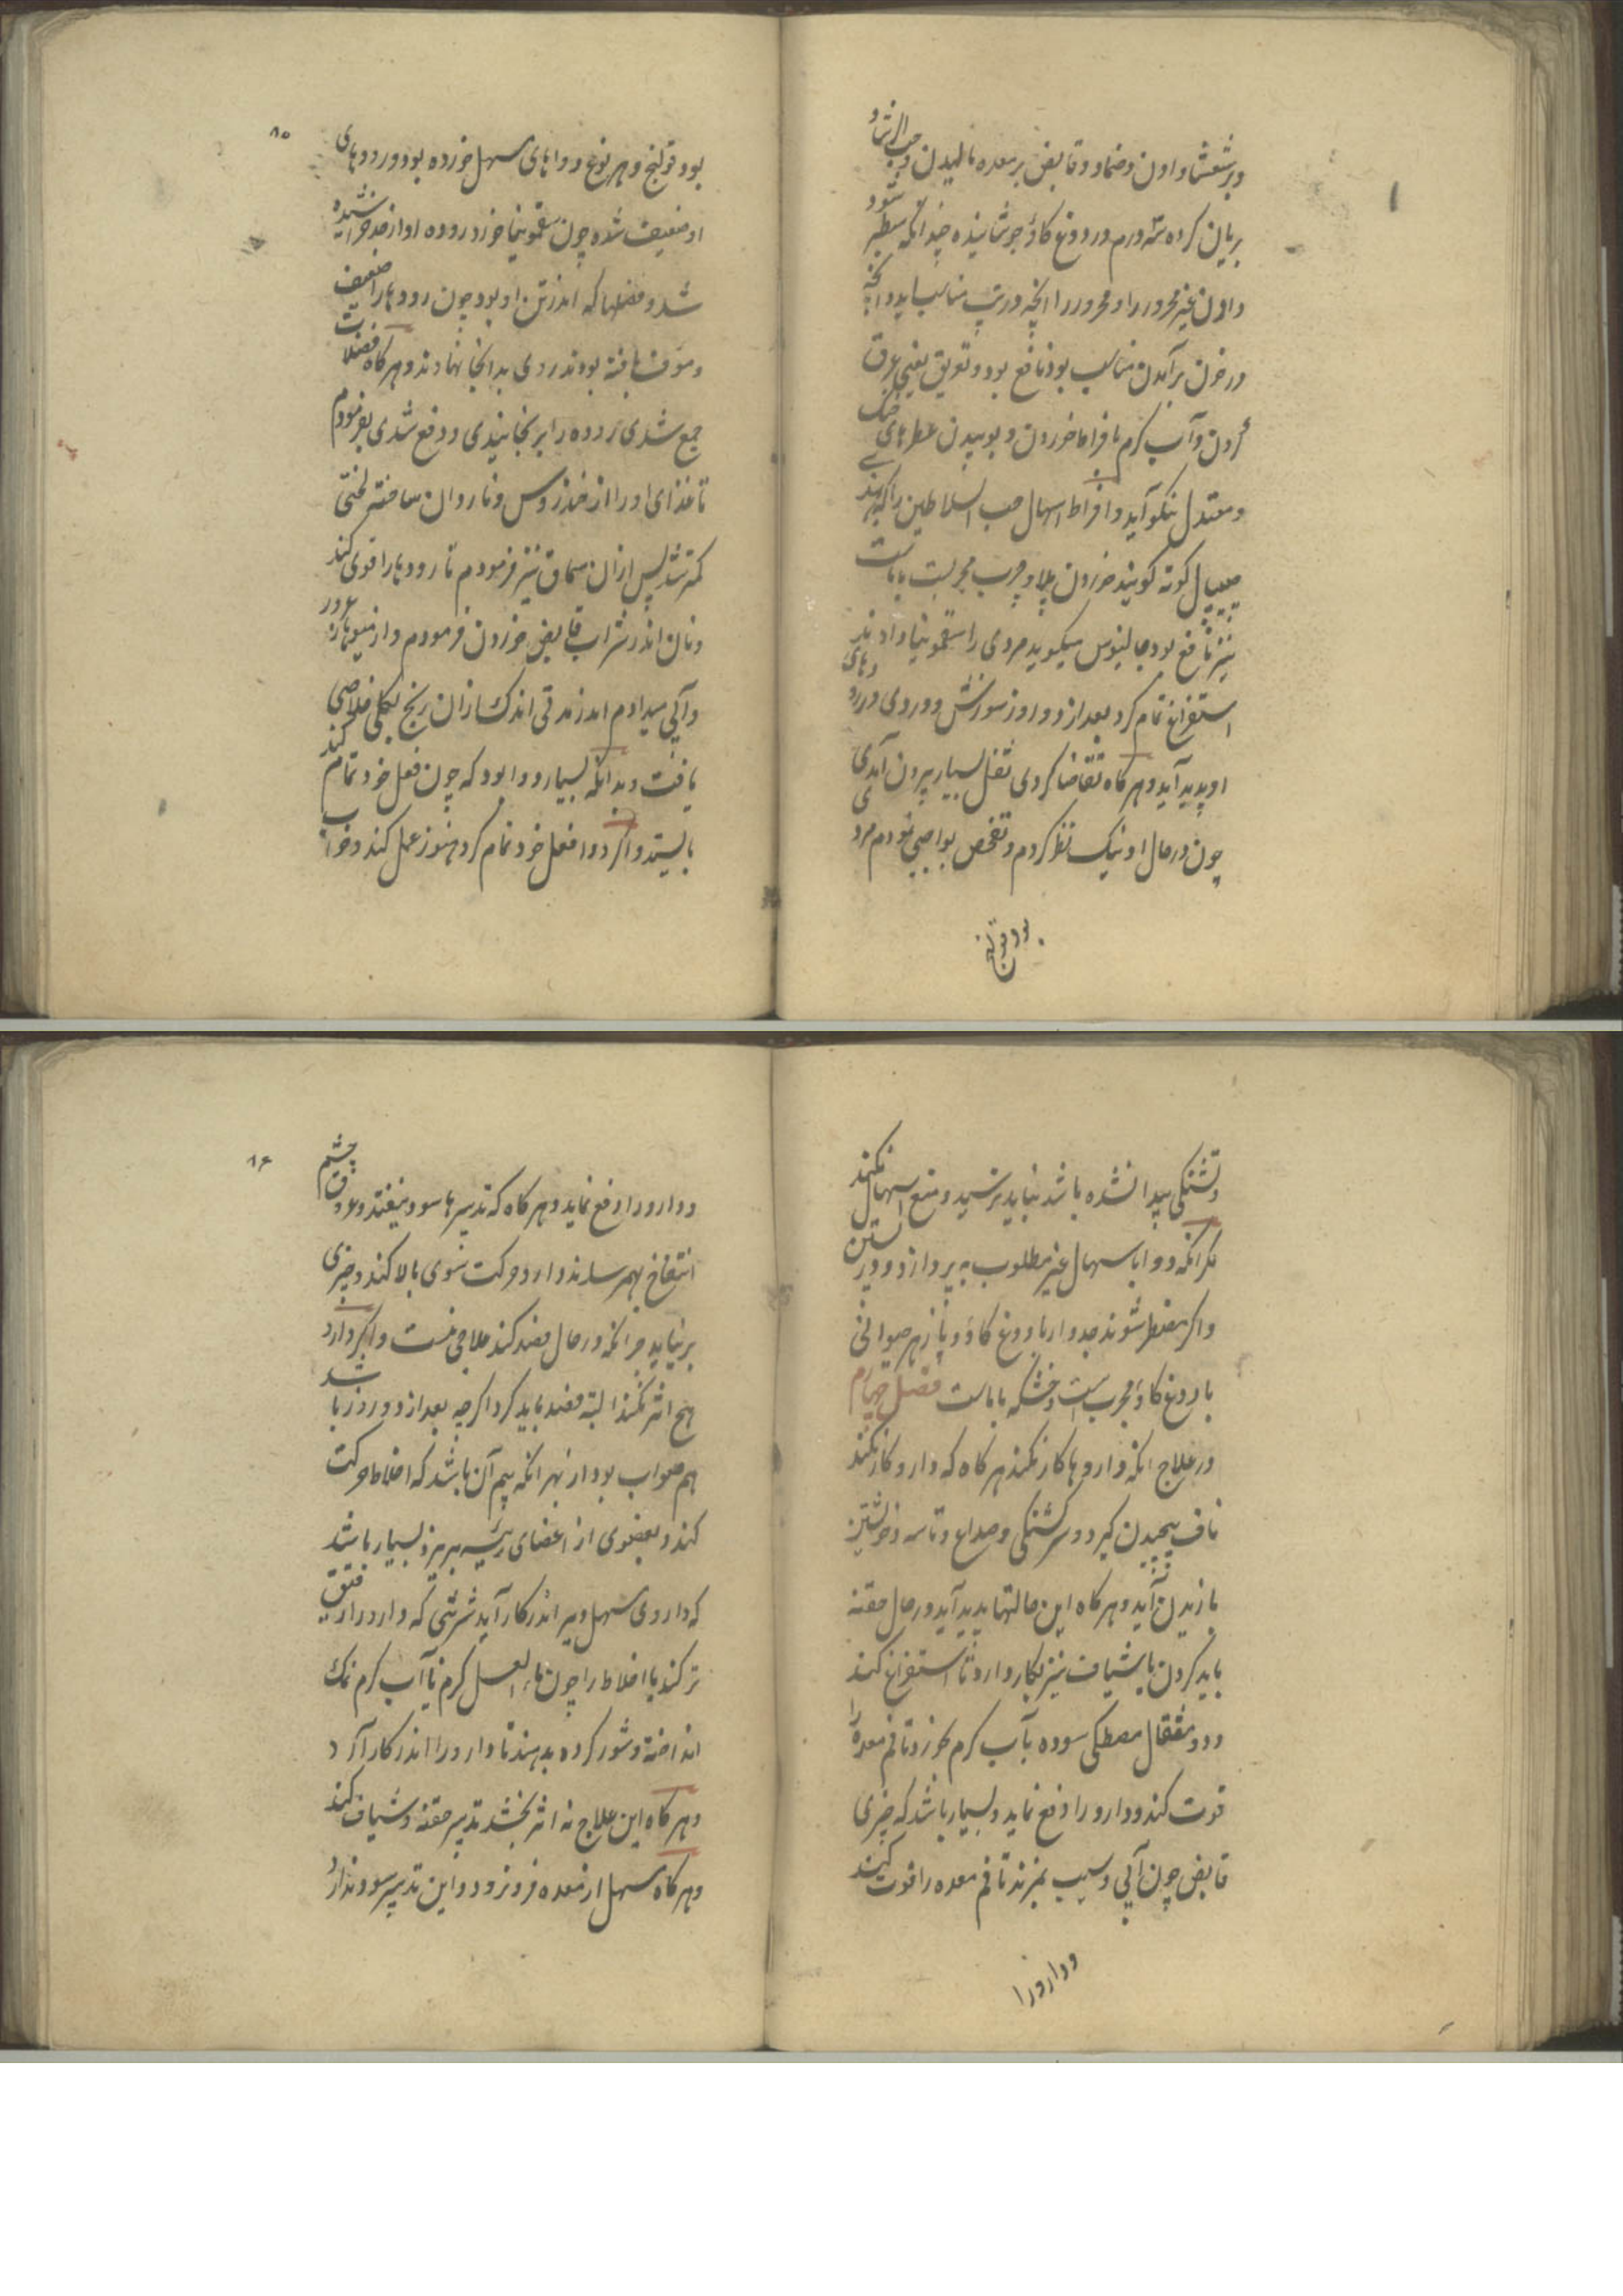 و برشعشا دادن و ضماد و قابض بر معده مالیدن و حب الرشاد
بریان کرده سه درم در دوغ کاو جوشانیده چندانکه سطبر شود
دادن غیر محرور را و محرور را انچه در تب مناسب اید و انچه
در خون برآمدن مناسب بود نافع بود و تعویق یعنی عرق
آوردن و آب کرم بافراط خوردن و بوییدن عطرهای خنک
و معتدل نیکو آید و افراط اسهال حب السلاطین را که بهندی
جیپال کوته کویند خوردن پلاو چرب مجربست با ماست
نیز نافع بود جالینوس میکوید مردی را سقمونیا دادند
استفراغ تمام کرد بعد از دو روز سوزش و دردی در رودهای
او پدید آید و هر کاه تقاضا کردی ثفل بسیار بیرون آمدی
چون در حال او نیک نظر کردم و تفحص بواجبی نمودم مردی
بود قولنج
۸۵
بود قولنج و بهر نوع دواهای مسهل خورده بود و رودهای
او ضعیف شده چون سقمونیا خورد روده او از حد خراشیده
شد و فضلها که اندر تن او بود چون رودها را ضعیف
و مؤف یافته بودند روی بدانجا نهادند و هر کاه فضلات
جمع شدی روده را برنجانیدی و دفع شدی بفرمودم
تا غذای او را از خندروس و ناردان ساختند لختی
کمتر شد پس ازان سماق نیز فرمودم تا رودها را قوی کند
و نان اندر شراب قابض خوردن فرمودم و از میوها امرود
و آبی میدادم اندر مدتی اندک ازان رنج بکلی خلاصی
یافت و بدانکه بسیار دوا بود که چون فعل خود تمام کند
بایستد و اکر دوا فعل خود تمام کرد هنوز عمل کند و خواب
و تشنکی پیدا نشده باشد نباید ترسید و منع اسهال نکنند
مکر انکه دوا باسهال غیر مطلوب به پردازد و در بستن
و اکر مضطر شوند جدوار با دوغ کاو و پازهر حیوانی
با دوغ کاو مجرب است و خشکه با ماست فصل چهارم
در علاج انکه داروها کار نکند هر کاه که دارو کار نکند
ناف پیچیدن کیرد و سرکشتکی و صداع و تاسه و خویشتن
یازیدن آید و هر کاه این حالتها پدید آید در حال حقنه
باید کردن یا شیاف نیز بکار دارد تا استفراغ کند
و دو مثقال مصطکی سوده بآب کرم بخورد تا فم معده را
قوت کند و دارو را دفع نماید و بسیار باشد که چیزی
قابض چون آبی و سیب بمزند تا فم معده را قوت کند
و دارو را
۸۶
و دارو را دفع نماید و هر کاه که تدبیرها سود نیفتد و عروق چشم
انتفاخ بهم رساند و دارو حرکت سوی بالا کند و چیزی
برنیاید چرا که در حال فصد کند علاجی نیست و اکر دارو
هیچ اثر نکند البته فصد باید کرد اکرچه بعد از دو روز باشد
هم صواب بود از بهر انکه بیم آن باشد که اخلاط حرکت
کند و بعضوی از اعضای رئیسه بریزد و بسیار باشد
که داروی مسهل دیر اندر کار آید شربتی که دارو را رقیق
تر کند یا اخلاط را چون ماء العسل کرم یا آب کرم نمک
انداخته و شور کرده بدهند تا دارو را اندر کار آرد
و هر کاه این علاج نه اثر بخشد تدبیر حقنه و شیاف کند
و هر کاه مسهل از معده فرو نرود و این تدبیر سود ندارد